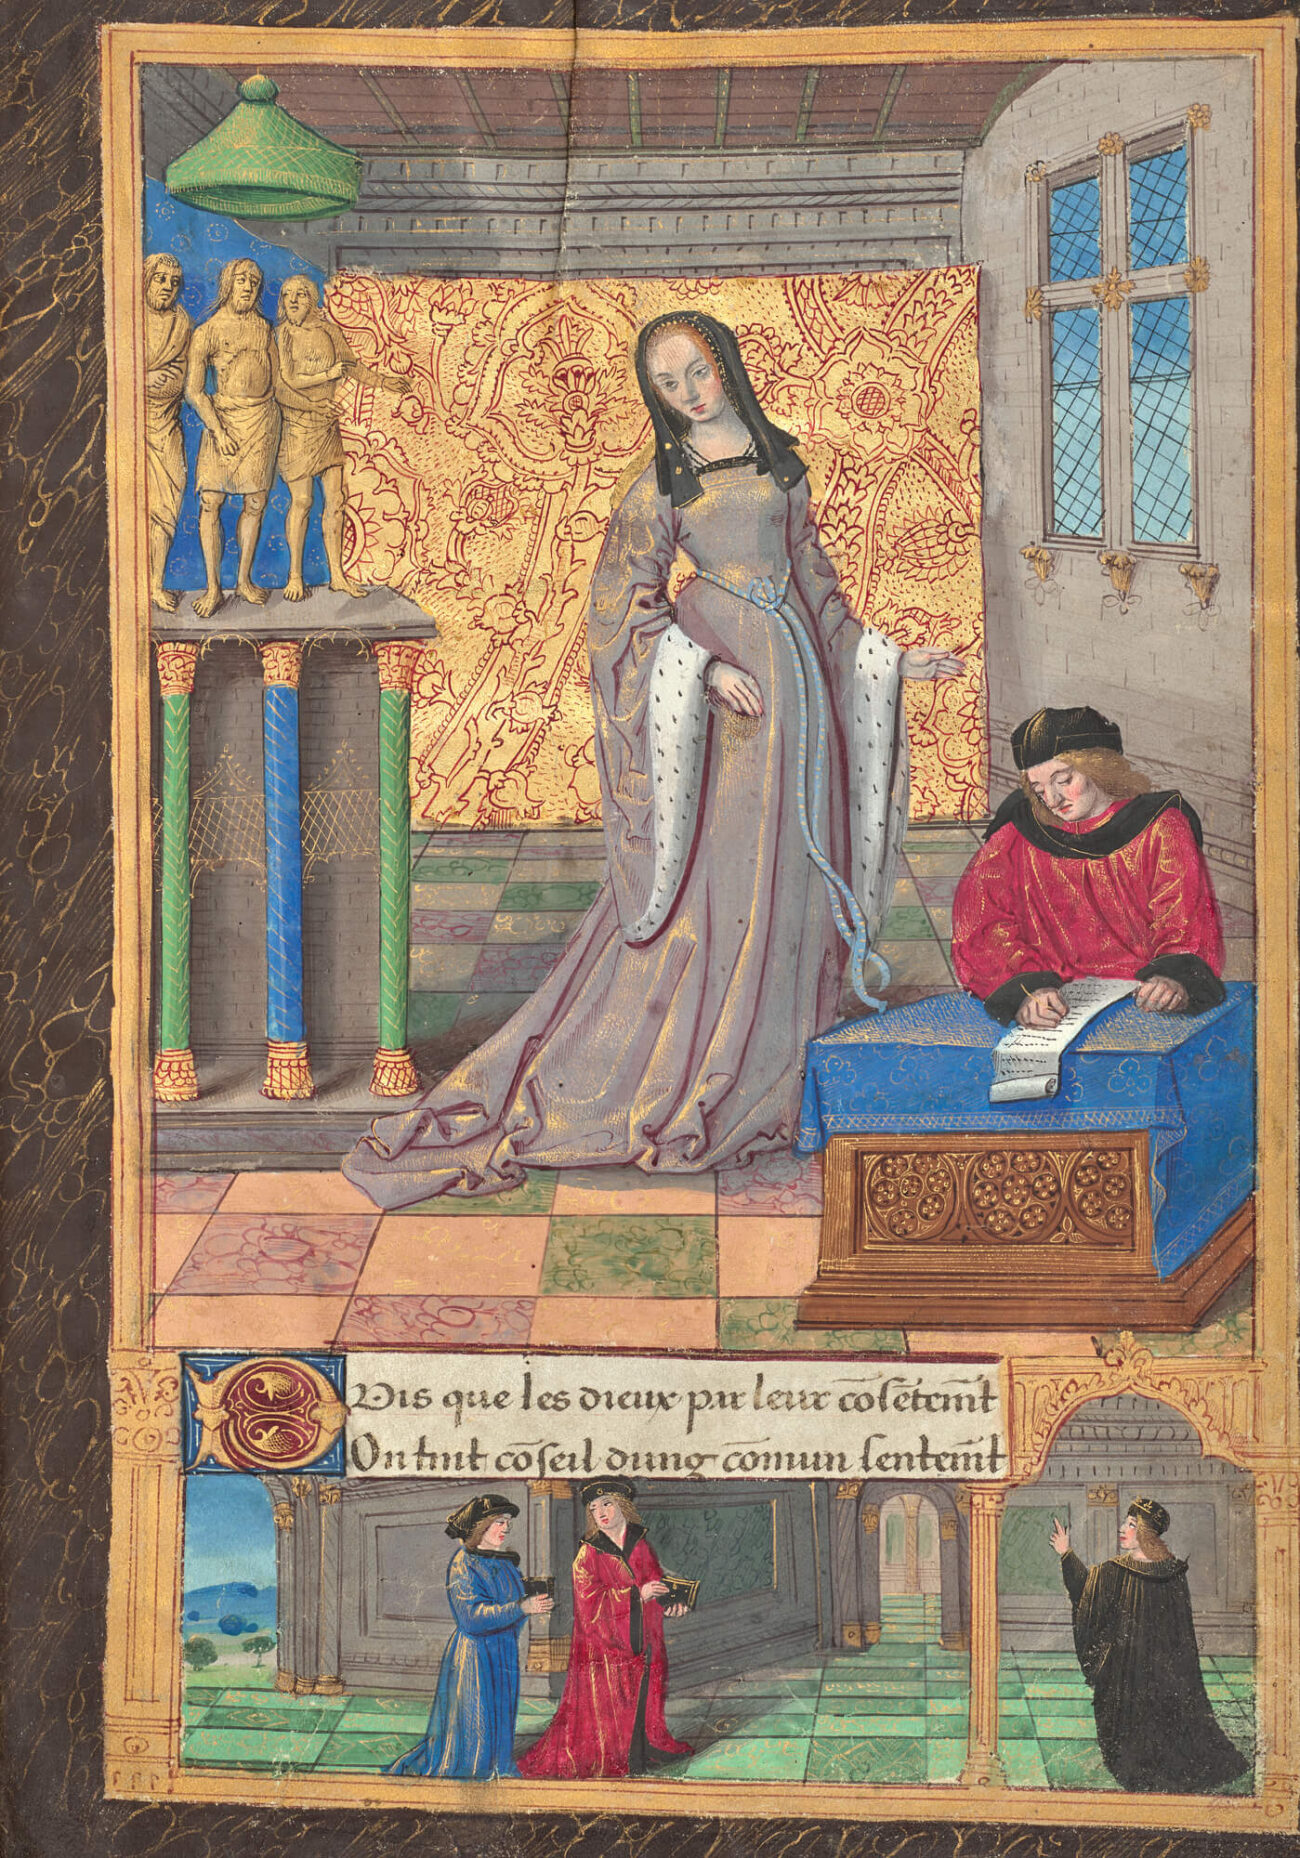 Puis que les dieux par leur cōsētemīt
On tint cōseil dung cōmun sentemīt